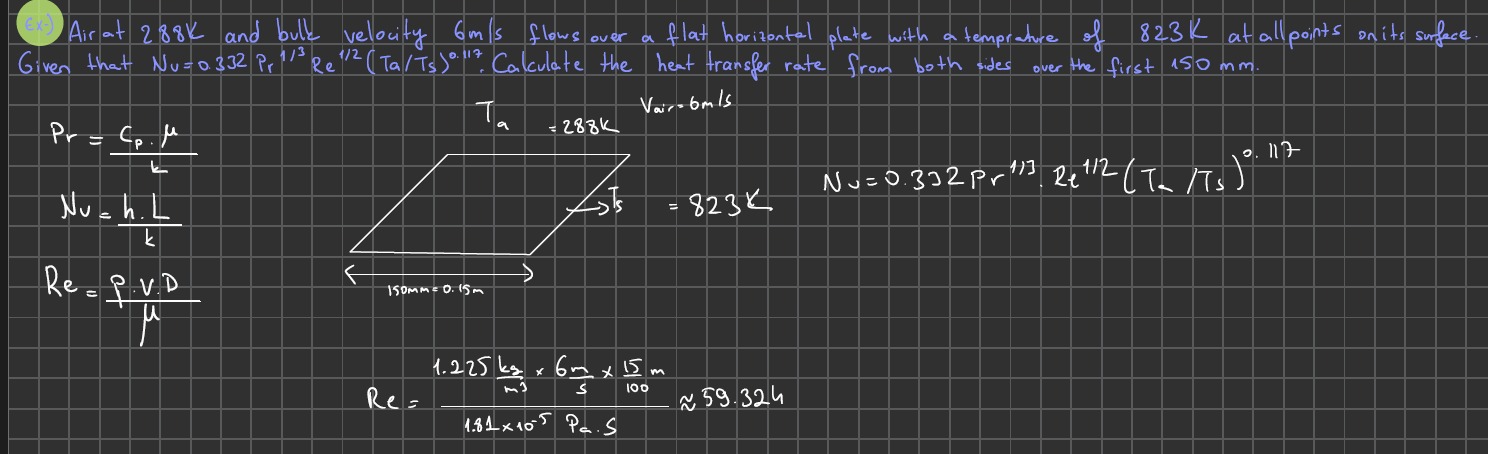 Ex-) Air at 288K and bulk velocity 6m/s flows over a flat horizontal plate with a temprature of 823K at all points on its surface.
Given that Nu=0.332 Pr^1/3 Re^1/2 (Ta/Ts)^0.117. Calculate the heat transfer rate from both sides over the first 150 mm.
Ta = 288K
Vair = 6m/s
Pr = Cp.μ / k
Nu = 0.332 Pr^1/3 . Re^1/2 (Ta/Ts)^0.117
Ts = 823K
Nu = h.L / k
Re = ρ.V.D / μ
150mm = 0.15m
Re = 1.225 kg/m³ x 6m/s x 15/100 m / 1.81x10^-5 Pa.S ≈ 59.324